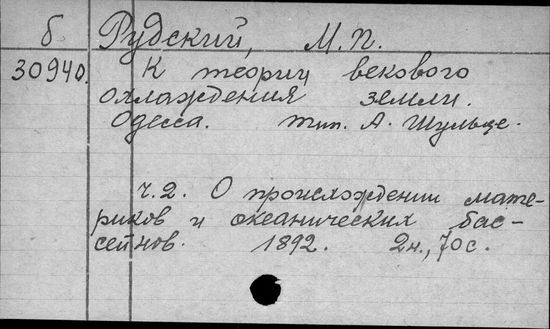 б Рудский, М.П.
30940. К теории векового
охлаждения земли.
Одесса. тип. А. Шульце.
ч.2. О происхождении мате-
риков и океанических бас-
сейнов. 1892. 2н., 70с.